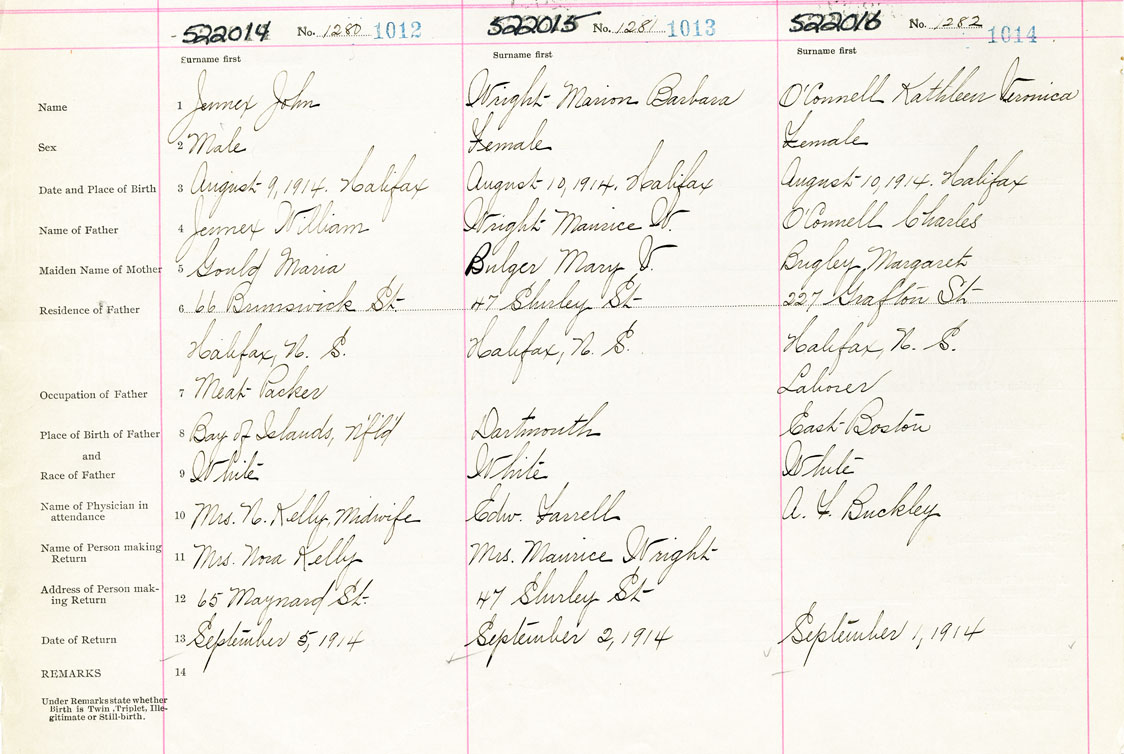 522014 No. 1280 1012 522015 No. 1281 1013 522016 No. 1282 1014
Surname first Surname first Surname first
Name 1 Jennex John Wright Marion Barbara O'Connell Kathleen Veronica
Sex 2 Male Female Female
Date and Place of Birth 3 August 9, 1914. Halifax August 10, 1914. Halifax August 10, 1914. Halifax
Name of Father 4 Jennex William Wright Maurice W. O'Connell Charles
Maiden Name of Mother 5 Gould Maria Bulger Mary V. Brigley, Margaret
Residence of Father 6 66 Brunswick St. 47 Shirley St 227 Grafton St
Halifax, N. S. Halifax, N. S. Halifax, N. S.
Occupation of Father 7 Meat Packer Laborer
Place of Birth of Father 8 Bay of Islands, Nfld Dartmouth East Boston
and
Race of Father 9 White White White
Name of Physician in
attendance 10 Mrs. N. Kelly, Midwife Edw. Farrell A. F. Buckley
Name of Person making
Return 11 Mrs. Nora Kelly Mrs. Maurice Wright
Address of Person mak-
ing Return 12 65 Maynard St. 47 Shirley St
Date of Return 13 September 5, 1914 September 2, 1914 September 1, 1914
REMARKS 14
Under Remarks state whether
Birth is Twin, Triplet, Ille-
gitimate or Still-birth.